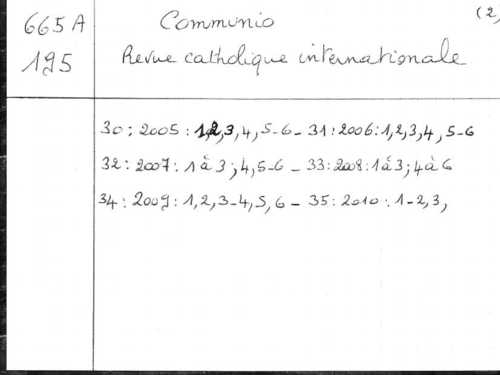 (2)
665 A Communio
195 Revue catholique internationale
30 : 2005 : 1,2,3,4,5-6 - 31 : 2006 : 1,2,3,4,5-6
32 : 2007 : 1 à 3 ; 4,5-6 - 33 : 2008 : 1 à 3 ; 4 à 6
34 : 2009 : 1,2,3-4,5,6 - 35 : 2010 : 1-2,3,